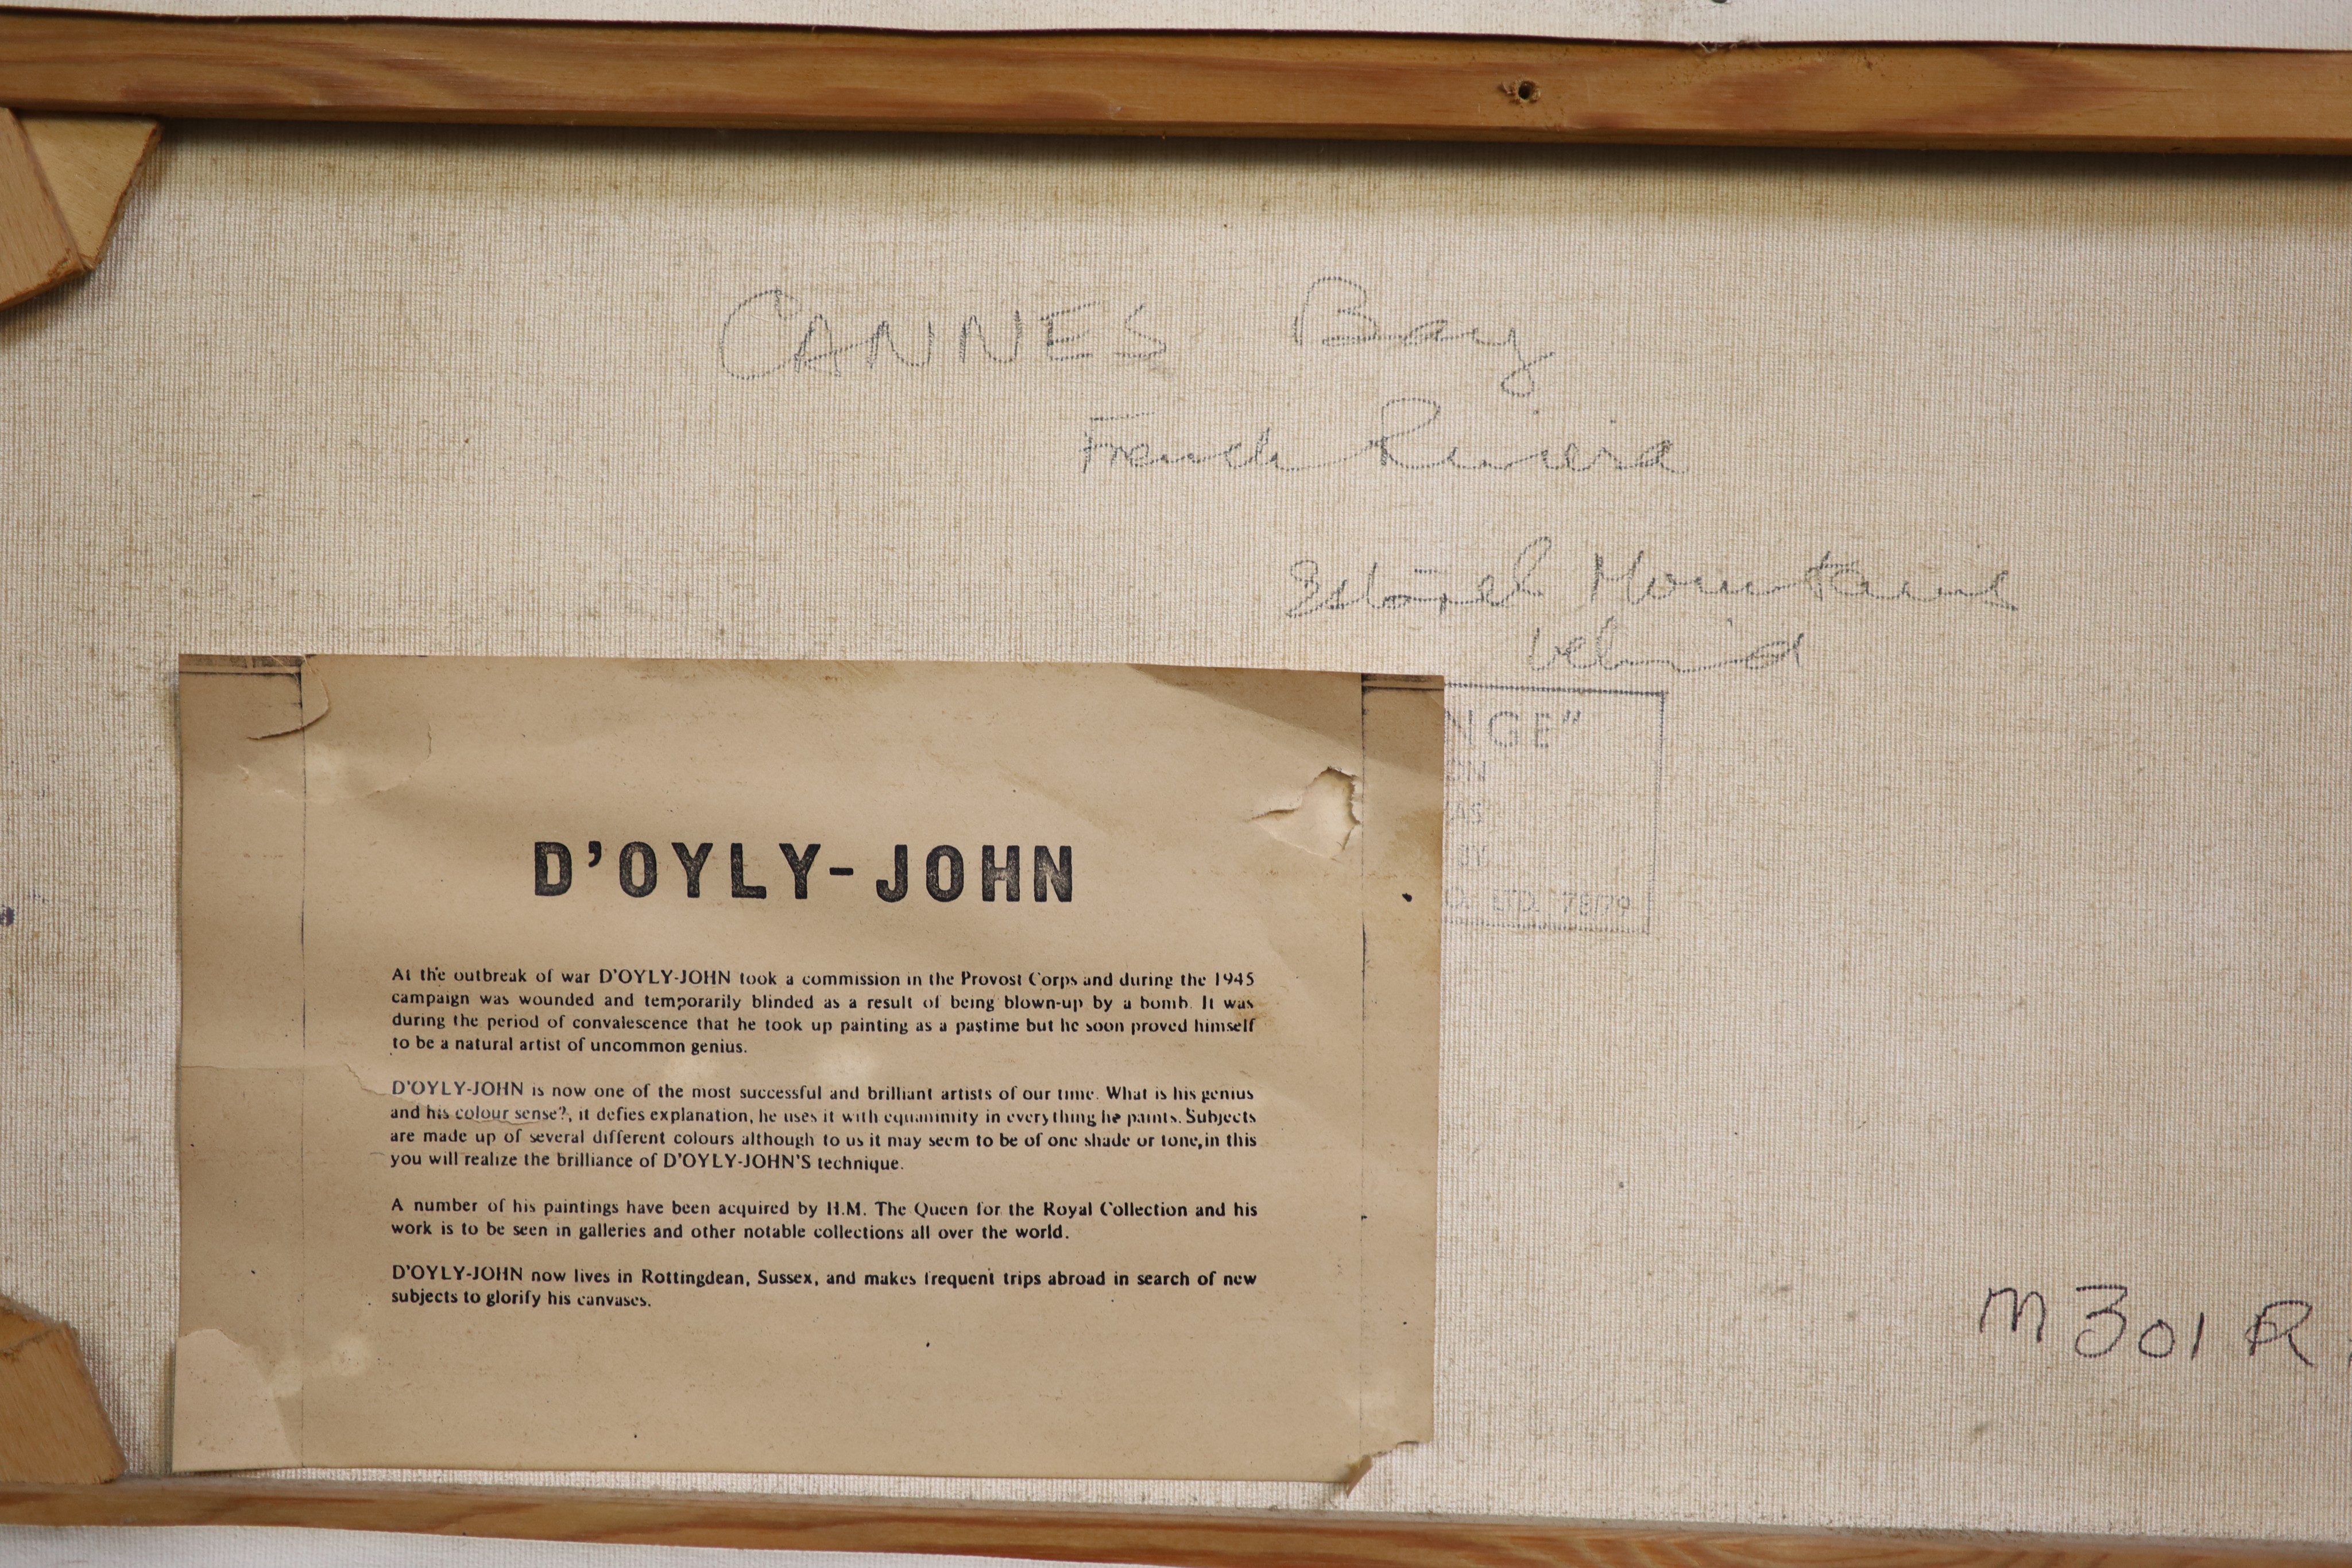 CANNES Bay
French Riviera
Mountains
behind
NGE"
ON
AS
BY
O. LTD. 78/79
D'OYLY-JOHN
At the outbreak of war D'OYLY-JOHN took a commission in the Provost Corps and during the 1945
campaign was wounded and temporarily blinded as a result of being blown-up by a bomb. It was
during the period of convalescence that he took up painting as a pastime but he soon proved himself
to be a natural artist of uncommon genius.
D'OYLY-JOHN is now one of the most successful and brilliant artists of our time. What is his genius
and his colour sense?, it defies explanation, he uses it with equanimity in everything he paints. Subjects
are made up of several different colours although to us it may seem to be of one shade or tone, in this
you will realize the brilliance of D'OYLY-JOHN'S technique.
A number of his paintings have been acquired by H.M. The Queen for the Royal Collection and his
work is to be seen in galleries and other notable collections all over the world.
D'OYLY-JOHN now lives in Rottingdean, Sussex, and makes frequent trips abroad in search of new
subjects to glorify his canvases.
M301R